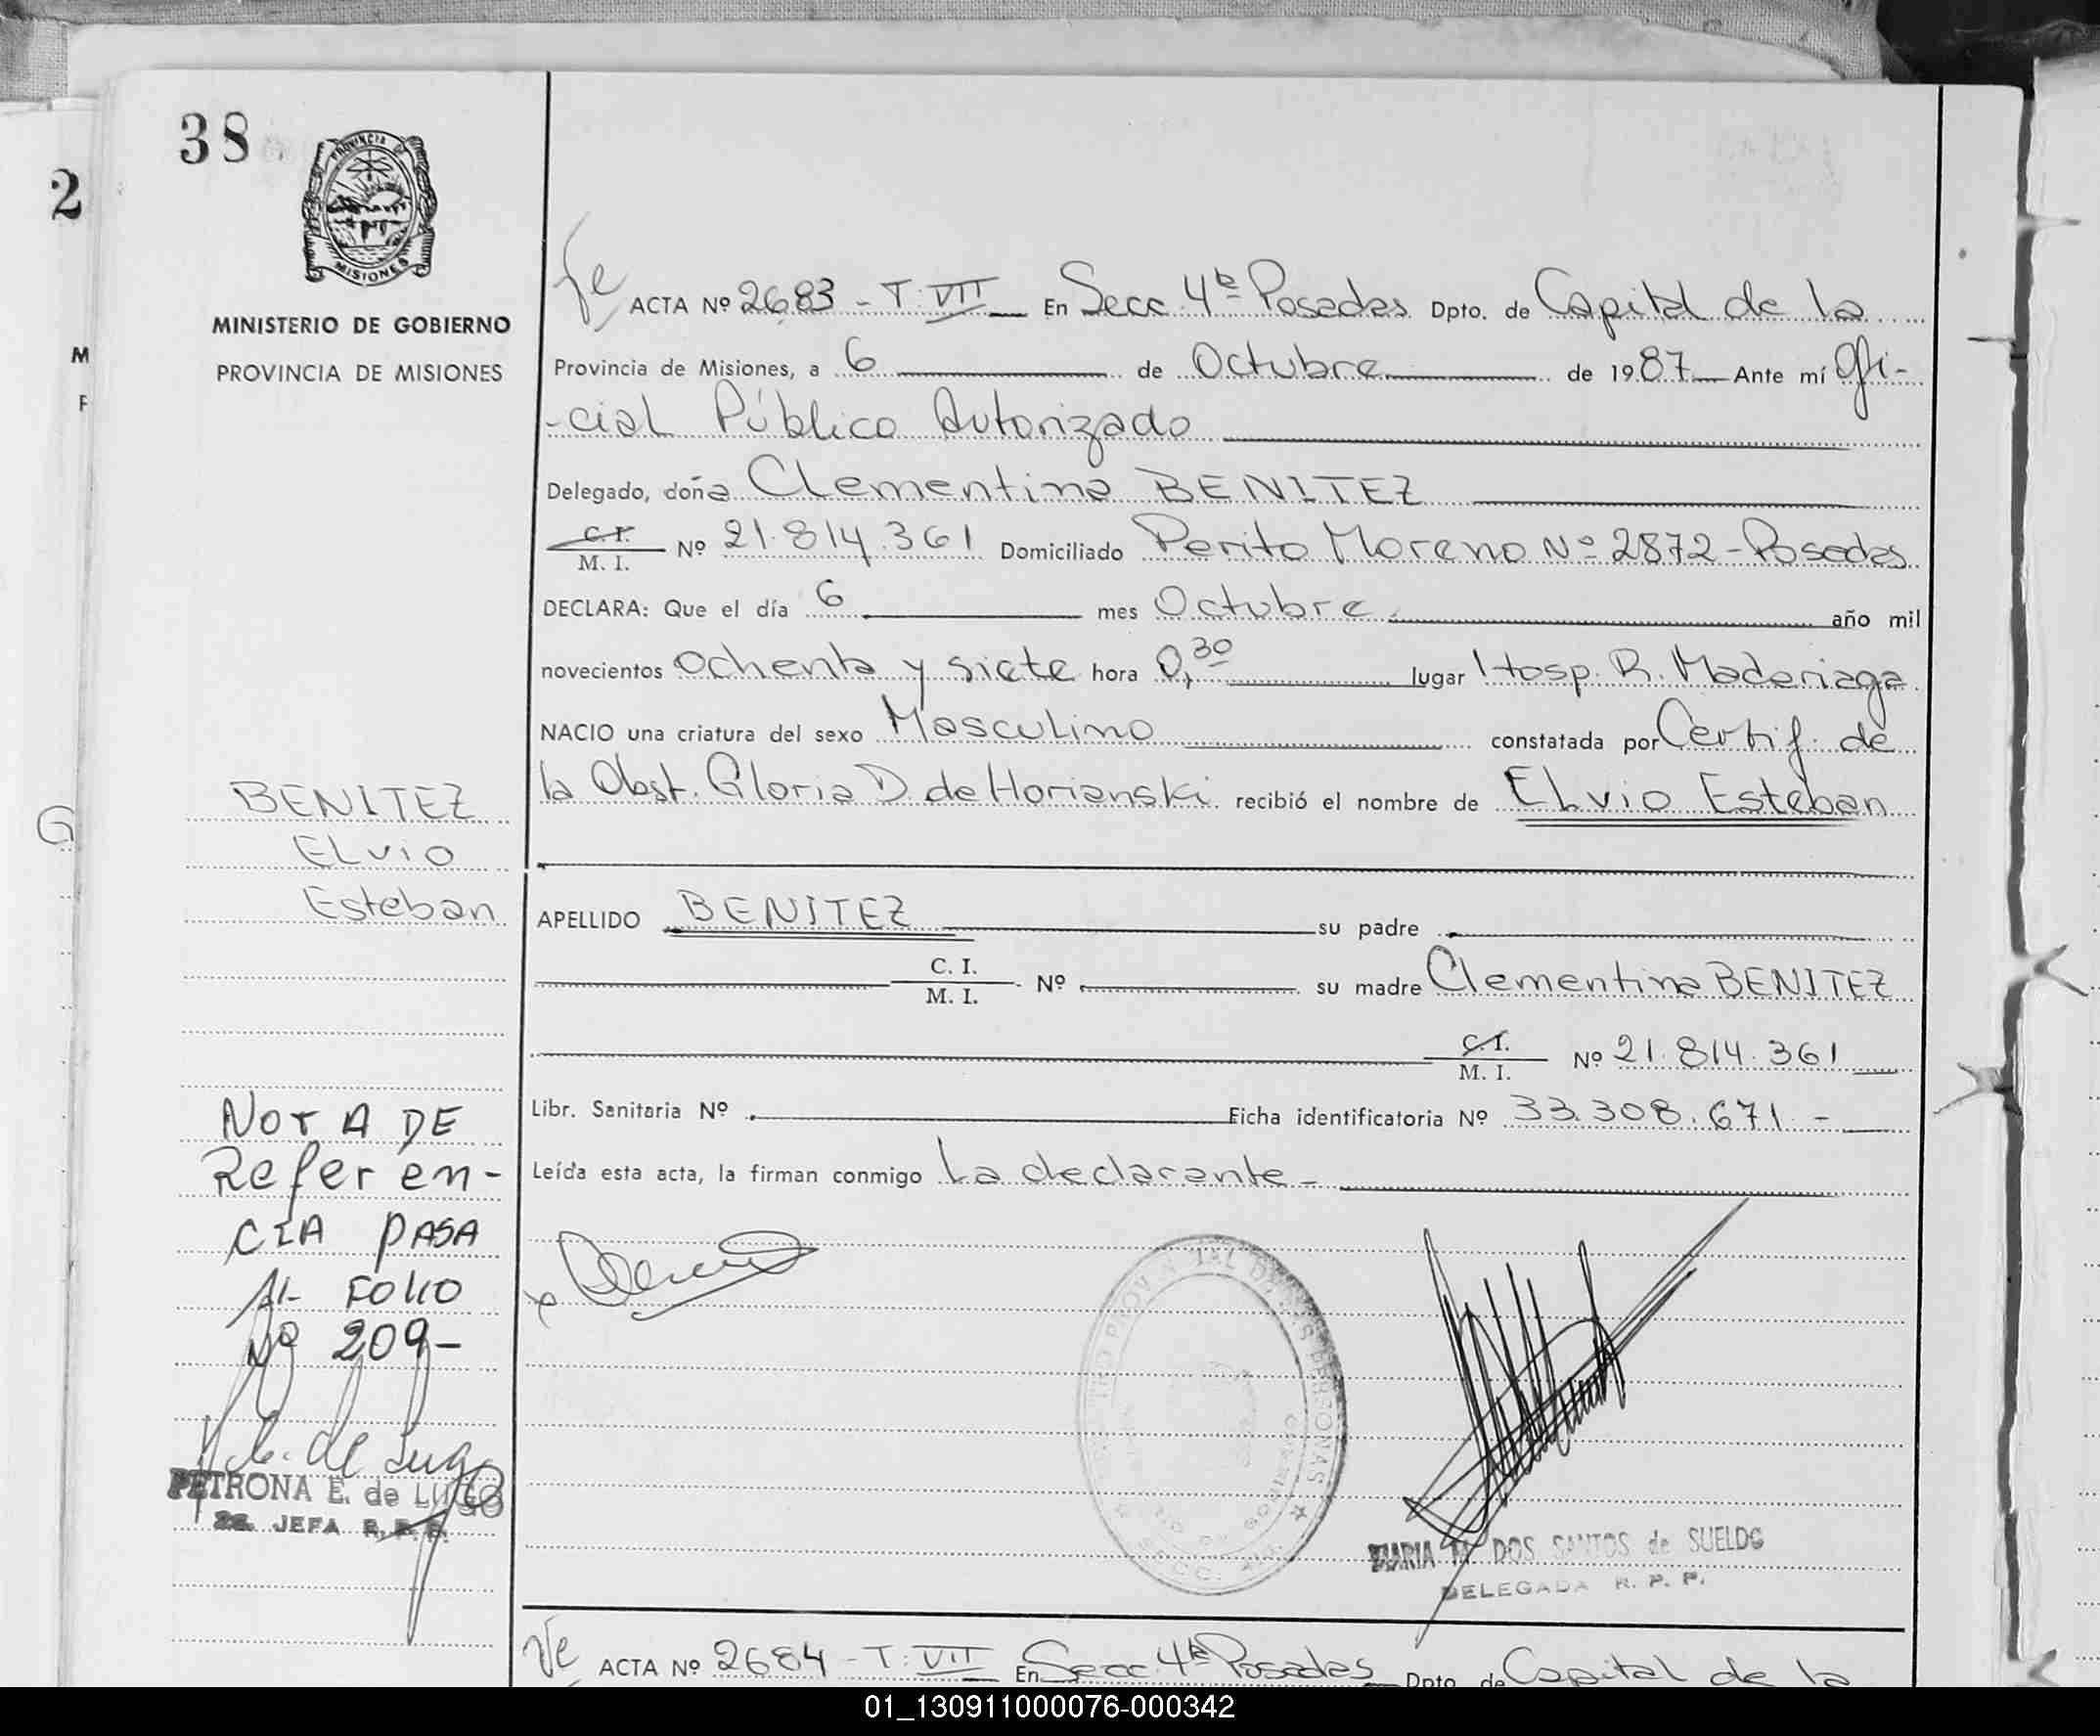 38
PROVINCIA DE
MISIONES
MINISTERIO DE GOBIERNO
PROVINCIA DE MISIONES
ACTA Nº 2683 - T: VII En Secc. 4ª Posadas Dpto. de Capital de la
Provincia de Misiones, a 6 de Octubre de 1987 Ante mí Ofi-
-cial Público Autorizado
Delegado, doña Clementina BENITEZ
C.I.
M. I. Nº 21.814.361 Domiciliado Perito Moreno Nº 2872-Posadas
DECLARA: Que el día 6 mes Octubre año mil
novecientos ochenta y siete hora 0,30 lugar Hosp. R. Madariaga
NACIO una criatura del sexo Masculino constatada por Certif. de
la Obst. Gloria D. de Horianski recibió el nombre de ELvio Esteban
BENITEZ
ELvio
Esteban
APELLIDO BENITEZ su padre
C. I.
M. I. Nº su madre Clementina BENITEZ
C.I.
M. I. Nº 21.814.361
Libr. Sanitaria Nº Ficha identificatoria Nº 33.308.671 -
Leída esta acta, la firman conmigo La declarante -
NOTA DE
Referen-
CIA PASA
AL FOLIO
Nº 209-
PETRONA E. de LUGO
JEFA R. P. P.
MARIA M. DOS SANTOS de SUELDO
DELEGADA R. P. P.
ACTA Nº 2684 - T: VII En Secc. 4ª Posadas Dpto. de Capital de la
2
M
G
01_130911000076-000342